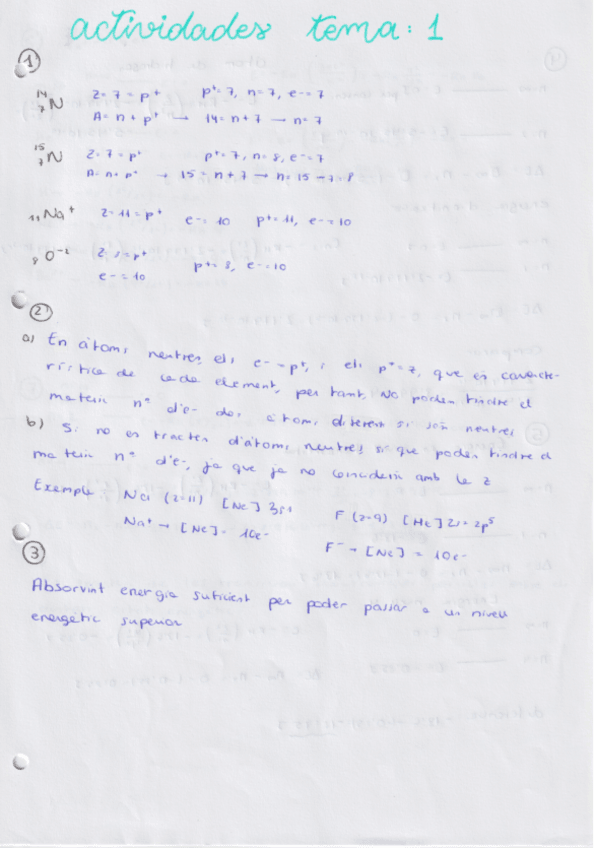 actividades tema: 1
1
14 7 N Z=7=p+ p+=7, n=7, e-=7
A=n+p+ → 14=n+7 → n=7
15 7 N Z=7=p+ p+=7, n=8, e-=7
A=n+p+ → 15=n+7 → n=15-7=8
11 Na+ Z=11=p+ e-=10 p+=11, e-=10
8 O-2 Z=8=p+ p+=8, e-=10
e-=10
2
a) En àtoms neutres els e-=p+, i els p+=Z, que és caracte-
rística de cada element, per tant, No poden tindre el
mateix nº d'e- dos àtoms diferent si són neutres
b) Si no es tracten d'àtoms neutres si que poden tindre el
mateix nº d'e-, ja que ja no coincideix amb la Z
Exemple Na (Z=11) [Ne] 3s1 F (Z=9) [He] 2s2 2p5
Na+ → [Ne] = 10e- F- → [Ne] = 10e-
3
Absorvint energia suficient per poder passar a un nivell
energètic superior